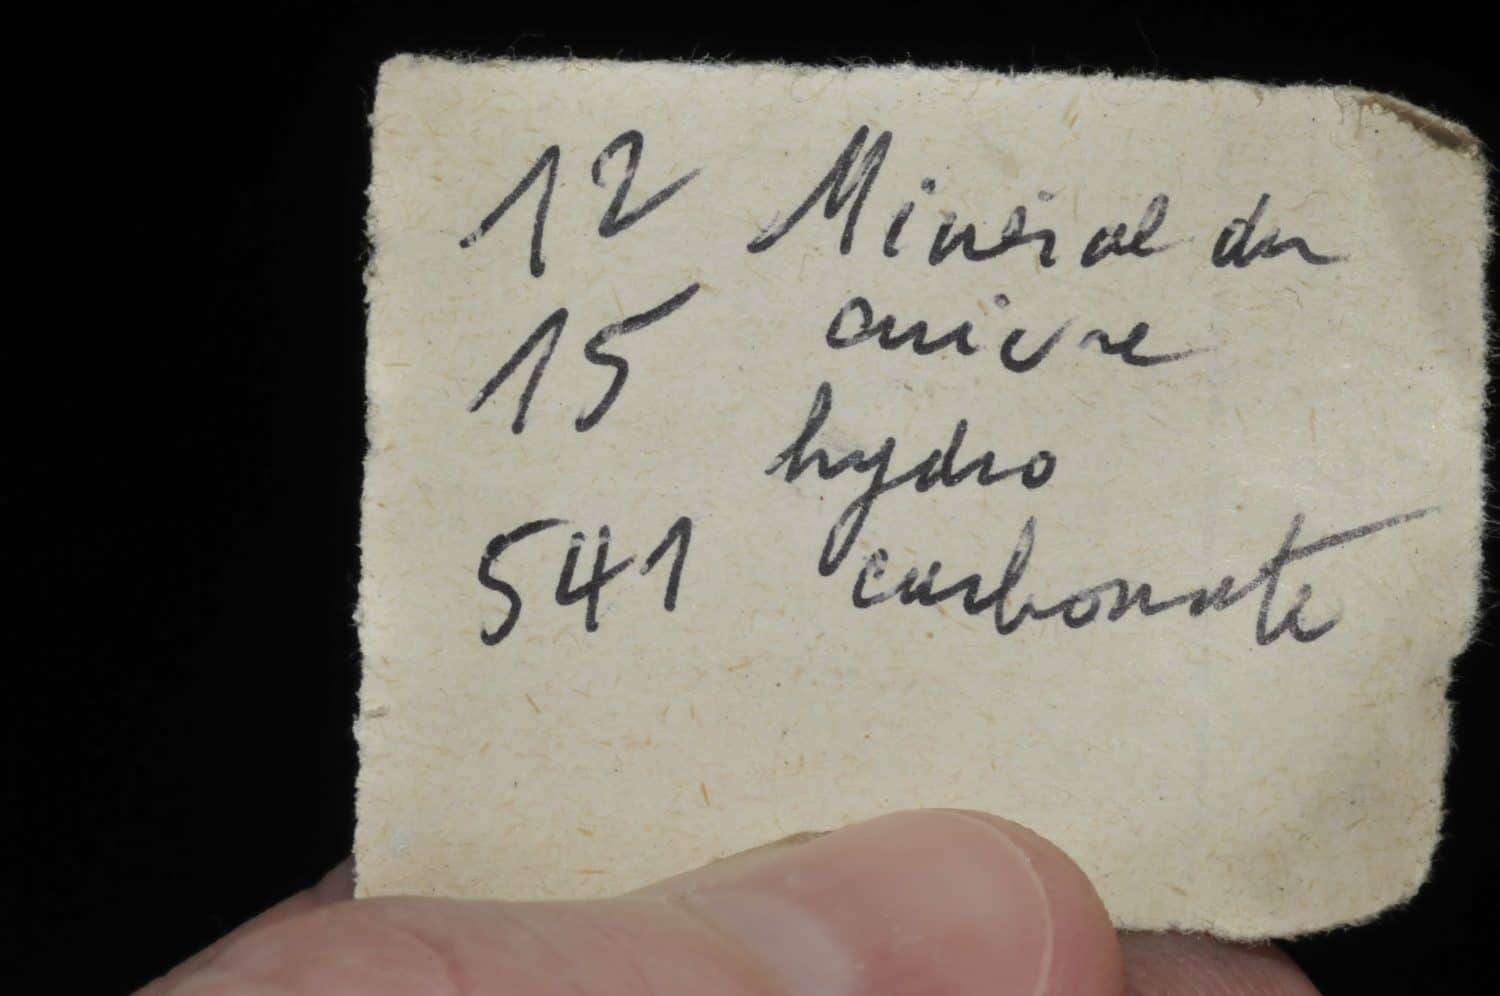 12 Minéral du
15 cuivre
hydro
541 carbonate